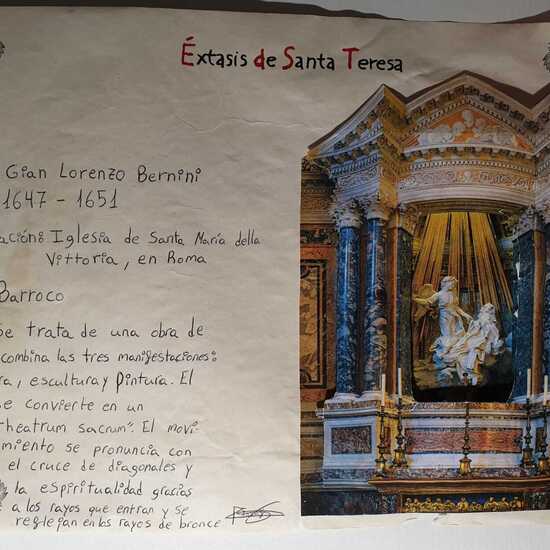 Éxtasis de Santa Teresa
Gian Lorenzo Bernini
1647 - 1651
Iglesia de Santa María della
Vittoria, en Roma
Barroco
se trata de una obra de
combina las tres manifestaciones:
escultura y Pintura. El
se convierte en un
theatrum sacrum". El movi-
miento se pronuncia con
el cruce de diagonales y
la espiritualidad gracias
a los rayos que entran y se
reflejan en los rayos de bronce